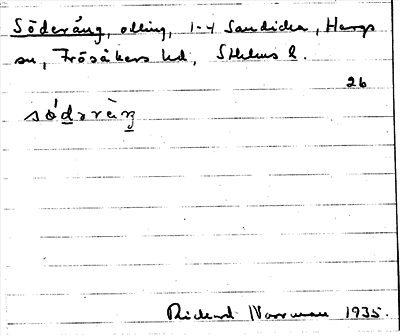 Söderäng, olling, 1-4 Sandika, Hargs
sn, Frösåkers hd, Sthlms l.
26
södəräŋ
Rickard Norrman 1935.